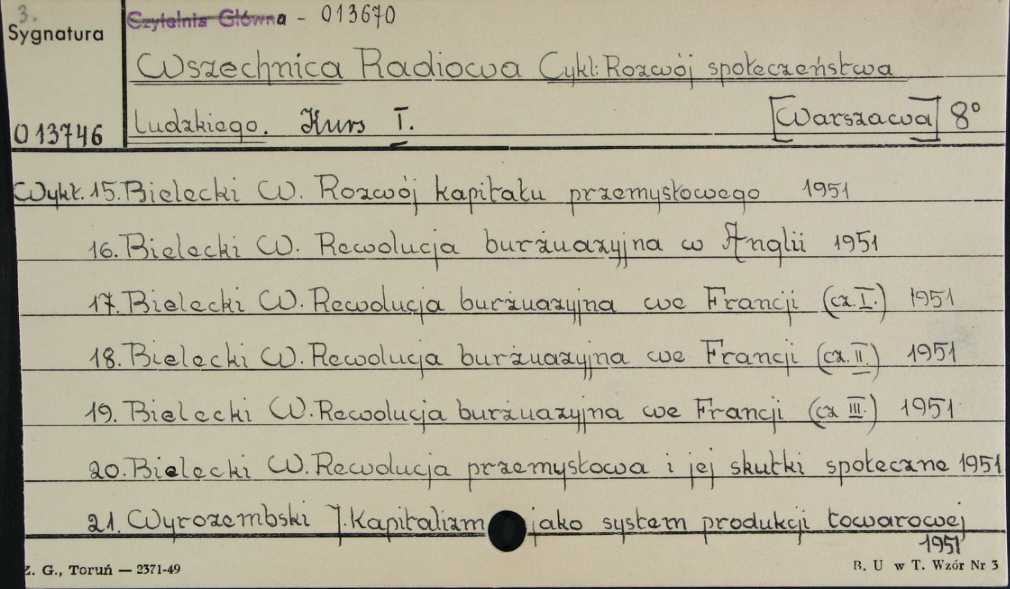 3.
Sygnatura
Czytelnia Główna - 013670
Wszechnica Radiowa Cykl: Rozwój społeczeństwa
013746
ludzkiego. Kurs I. [Warszawa] 8°
Wykł. 15. Bielecki W. Rozwój kapitału przemysłowego 1951
16. Bielecki W. Rewolucja burżuazyjna w Anglii 1951
17. Bielecki W. Rewolucja burżuazyjna we Francji (cz. I.) 1951
18. Bielecki W. Rewolucja burżuazyjna we Francji (cz. II.) 1951
19. Bielecki W. Rewolucja burżuazyjna we Francji (cz III.) 1951
20. Bielecki W. Rewolucja przemysłowa i jej skutki społeczne 1951
21. Wyrozembski J. Kapitalizm jako system produkcji towarowej
1951
Z. G., Toruń — 2371-49
B. U w T. Wzór Nr 3